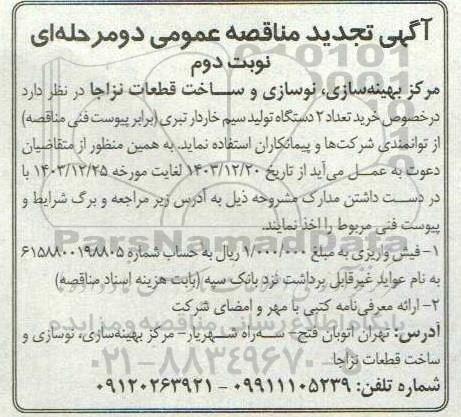 آگهی تجدید مناقصه عمومی دومرحله‌ای
نوبت دوم
مرکز بهینه‌سازی، نوسازی و ساخت قطعات نزاجا در نظر دارد
درخصوص خرید تعداد ۲ دستگاه تولید سیم خاردار تبری (برابر پیوست فنی مناقصه)
از توانمندی شرکت‌ها و پیمانکاران استفاده نماید. به همین منظور از متقاضیان
دعوت به عمل می‌آید از تاریخ ۱۴۰۳/۱۲/۲۰ لغایت مورخه ۱۴۰۳/۱۲/۲۵ با
در دست داشتن مدارک مشروحه ذیل به آدرس زیر مراجعه و برگ شرایط و
پیوست فنی مربوط را اخذ نمایند.
۱- فیش واریزی به مبلغ ۱/۰۰۰/۰۰۰ ریال به حساب شماره ۶۱۵۸۸۰۰۱۹۸۸۰۵
به نام عواید غیرقابل برداشت نزد بانک سپه (بابت هزینه اسناد مناقصه)
۲- ارائه معرفی‌نامه کتبی با مهر و امضای شرکت
آدرس: تهران اتوبان فتح- سه‌راه شهریار- مرکز بهینه‌سازی، نوسازی و
ساخت قطعات نزاجا
شماره تلفن: ۰۹۹۱۱۱۰۵۲۳۹ - ۰۹۱۲۰۲۶۳۹۲۱
ParsNamadData
پایگاه اطلاع رسانی مناقصه و مزایده
۰۲۱-۸۸۳۴۹۶۷۰-۵